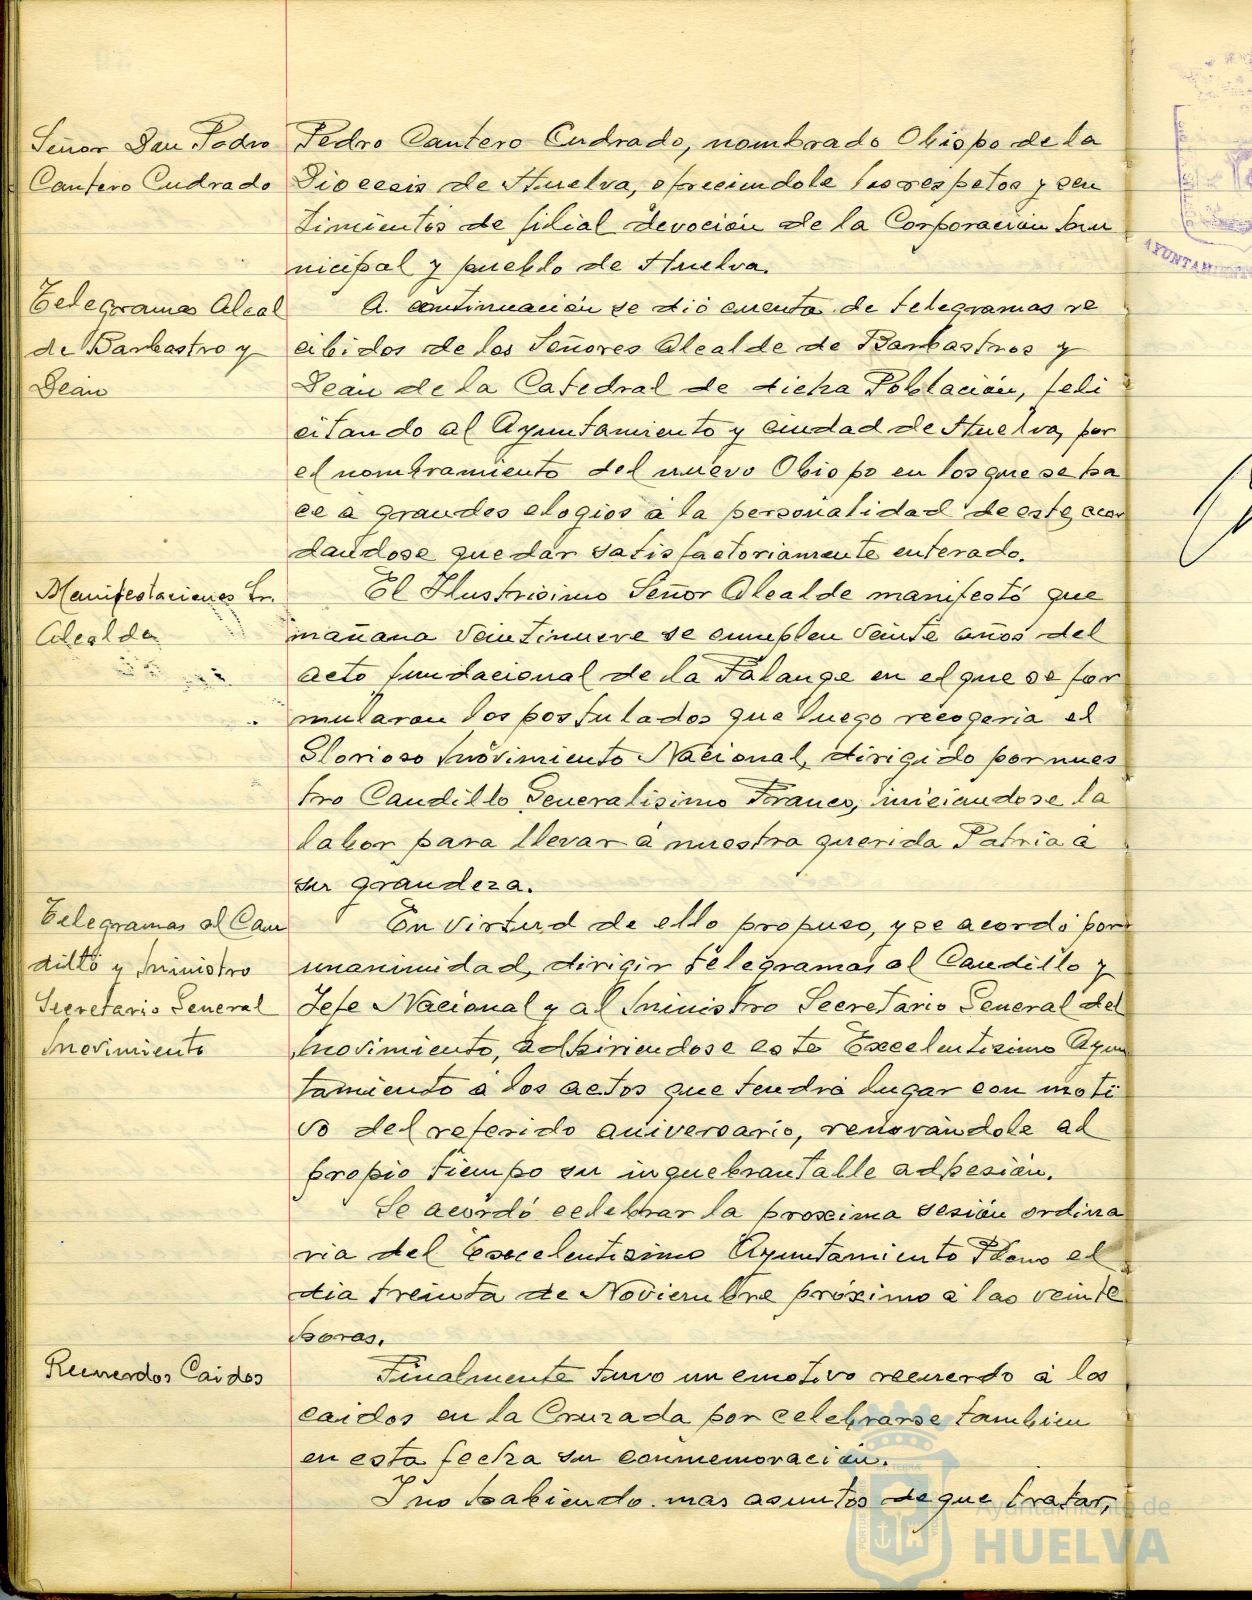 Señor Don Pedro
Cantero Cudrado
Pedro Cantero Cudrado, nombrado Obispo de la
Diocesis de Huelva, ofreciendole los respetos y sen
timientos de filial devoción de la Corporación Mu
nicipal y pueblo de Huelva.
Telegramas Alcal
de Barbastro y
Deán
A continuación se dió cuenta de telegramas re
cibidos de los Señores Alcalde de Barbastros y
Deán de la Catedral de dicha Población, feli
citando al Ayuntamiento y ciudad de Huelva, por
el nombramiento del nuevo Obispo en los que se ha
ce á grandes elogios á la personalidad de este, acor
dandose quedar satisfactoriamente enterado.
Manifestaciones Sr.
Alcalde
El Ilustrisimo Señor Alcalde manifestó que
mañana veintinueve se cumplen veinte años del
acto fundacional de la Falange en el que se for
mularon los postulados que luego recogeria el
Glorioso Movimiento Nacional, dirigido por nues
tro Caudillo Generalisimo Franco, iniciandose la
labor para llevar á nuestra querida Patria á
su grandeza.
Telegramas al Cau
dillo y Ministro
Secretario General
Movimiento
En virtud de ello propuso, y se acordó por
unanimidad, dirigir telegramas al Caudillo y
Jefe Nacional y al Ministro Secretario General del
Movimiento, adhiriendose este Excelentisimo Ayun
tamiento á los actos que tendrá lugar con moti
vo del referido aniversario, renovándole al
propio tiempo su inquebrantable adhesión.
Se acordó celebrar la proxima sesión ordina
ria del Excelentisimo Ayuntamiento Pleno el
dia treinta de Noviembre próximo á las veinte
horas.
Recuerdos Caidos
Finalmente tuvo un emotivo recuerdo á los
caidos en la Cruzada por celebrarse tambien
en esta fecha su conmemoración.
I no habiendo mas asuntos de que tratar,
AYUNTAMIENTO
Ayuntamiento de
HUELVA